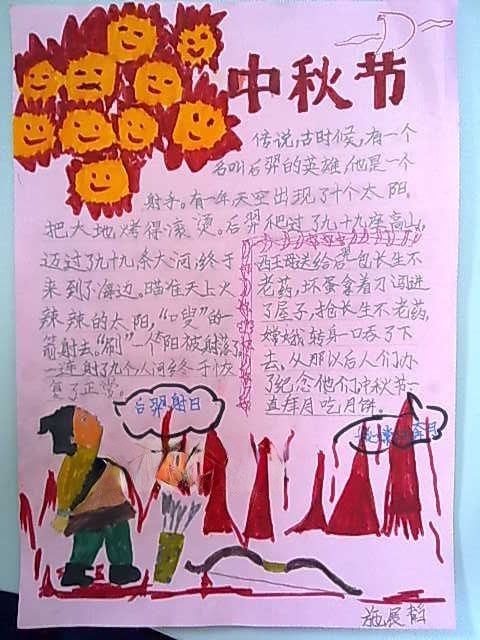 中秋节
传说,古时候,有一个
名叫后羿的英雄,他是一个
射手。有一年天空出现了十个太阳,
把大地烤得滚烫。后羿爬过了九十九座高山,
迈过了九十九条大河,终于
来到了海边。瞄准天上火
辣辣的太阳,“嗖”的一
箭射去。“刷”一个阳被射落了
一连射了九个人间终于恢
复了正常。
西王母送给后羿一包长生不
老药,坏蛋拿着刀闯进
了屋子,抢长生不老药,
嫦娥转身一口吞了下
去。从那以后人们办
了纪念他们中秋节一
直拜月吃月饼。
后羿射日
奔月
施展韬